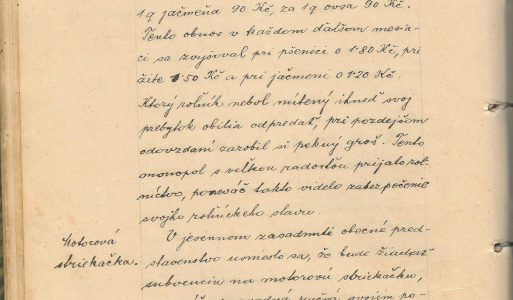 1 q jačmeňa 90 Kč, za 1 q ovsa 90 Kč.
Tento obnos v každom ďalšom mesia-
ci sa zvyšoval pri pšenici o 1·80 Kč, pri
žite 1·50 Kč a pri jačmeni o 1·20 Kč.
Ktorý roľník nebol nútený ihneď svoj
prebytok obilia odpredať, pri pozdejšom
odovzdaní zarobil si pekný groš. Tento
monopol s veľkou radosťou prijalo roľ-
níctvo, ponevač takto videlo zabezpečenie
svojho roľníckeho stavu.
Motorová
striekačka.
V jesennom zasadnutí obecné pred-
stavenstvo unieslo sa, že bude žiadať
subvenciu na motorovú striekačku,
svojim po-